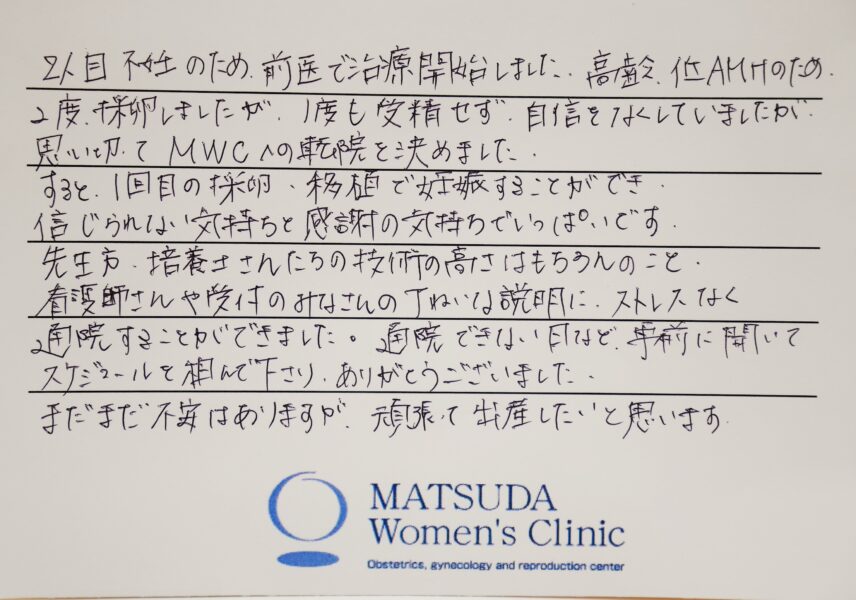 2人目不妊のため、前医で治療開始しました。高齢、低AMHのため、
2度、採卵しましたが、1度も受精せず、自信をなくしていましたが、
思い切ってMWCへの転院を決めました。
すると、1回目の採卵、移植で妊娠することができ、
信じられない気持ちと感謝の気持ちでいっぱいです。
先生方、培養士さんたちの技術の高さはもちろんのこと、
看護師さんや受付のみなさんの丁ねいな説明に、ストレスなく
通院することができました。通院できない日など、事前に聞いて
スケジュールを組んで下さり、ありがとうございました。
まだまだ不安はありますが、頑張って出産したいと思います。
MATSUDA
Women's Clinic
Obstetrics, gynecology and reproduction center